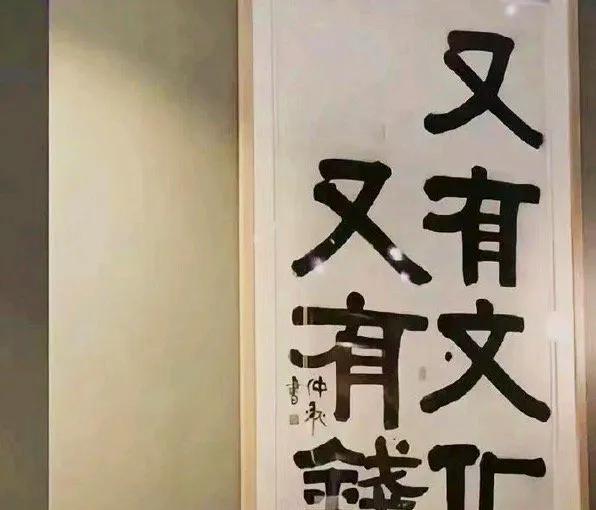 又有文化
又有錢
仲義書